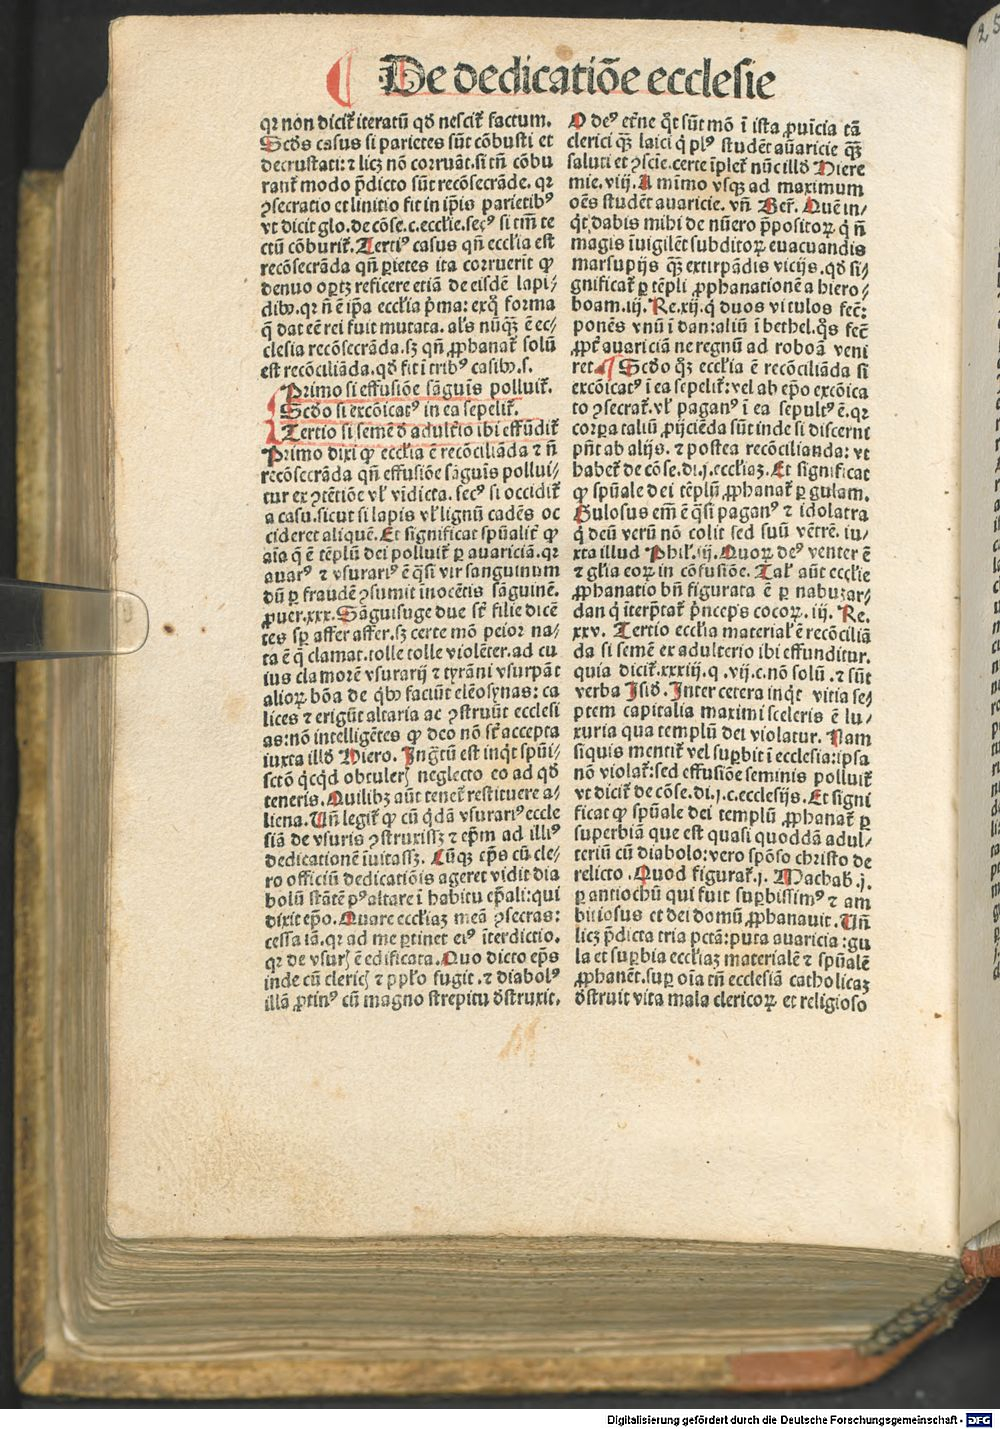 De dedicatiõe ecclesie
qr non dicit᷑ iteratũ qď nescit᷑ factum.
Scďs casus si parietes sũt cõbusti et
decrustati: ⁊ licꝫ nõ corruãt. si tñ cõbu
rant᷑ modo p̃dicto sũt recõsecrãde. qr
ꝯsecratio et linitio fit in ip̃is parietibꝰ
vt dicit glo. de cõse. c. eccłie. secꝰ si tm̃ te
ctũ cõburit᷑. Tertiꝰ casus qñ eccłia est
recõsecrãda qñ ꝑietes ita corruerĩt ꝙ
denuo oꝑtꝫ reficere etiã de eisdẽ lapi⸗
dibꝰ. qr ñ ẽ ip̃a eccłia p̃ma: exq̃ forma
q̃ dat eẽ rei fuit mutata. al's nũq̃ꝫ ẽ ec⸗
clesia recõsecrãda. sꝫ qñ ꝓphanat᷑ solũ
est recõciliãda. qď fit ĩ tribꝰ casibꝰ. s.
Primo si effusiõe sãguĩs polluit᷑.
Scďo si excõicatꝰ in ea sepelit᷑.
Tertio si semẽ ď adult᷑io ibi effũdit᷑
Primo dixi ꝙ eccłia ẽ recõciliãda ⁊ ñ
recõsecrãda qñ effusiõe sãguĩs pollui⸗
tur ex ꝯtẽtiõe vł vĩdicta. secꝰ si occidit᷑
a casu. sicut si lapis vł lignũ cadẽs oc
cideret aliquẽ. Et significat spũalit᷑ ꝙ
aĩa q̃ ẽ tẽplũ dei polluit᷑ ꝑ auariciã. qr
auarꝰ ⁊ vsurariꝰ ẽ q̃si vir sanguinum
dũ ꝑ fraudẽ ꝯsumit inocẽtis sãguinẽ.
ꝓuer. xxx. Sãguisuge due sũt filie dicẽ
tes sꝑ affer affer. sꝫ certe mõ peior na⸗
ta ẽ q̃ clamat. tolle tolle violẽter. ad cu
ius clamorẽ vsurarij ⁊ tyrãni vsurpãt
alioꝝ bõa de qͥbꝰ faciũt elẽosynas: ca
lices ⁊ erigũt altaria ac ꝯstruũt ecclesi
as: nõ intelligẽtes ꝙ deo nõ sũt accepta
iuxta illď Hiero. Ingr̃tũ est inqͥt spũi⸗
sctõ qͥcqͥd obtuleris neglecto eo ad qď
teneris. Quilibꝫ aũt tenet᷑ restituere a⸗
liena. Vñ legit᷑ ꝙ cũ qͥdã vsurariꝰ eccle
siã de vsuris ꝯstruxissꝫ ⁊ ep̃m ad illiꝰ
dedicationẽ ĩuitassꝫ. Cũqꝫ ep̃s cũ cle⸗
ro officiũ dedicatiõis ageret vidit dia
bolũ stãtẽ pꝰ altare ĩ habitu ep̃ali: qui
dixit ep̃o. Quare eccłiaꝫ meã ꝯsecras:
cessa iã. qr ad me ꝑtinet eiꝰ ĩterdictio.
qr de vsuris ẽ edificata. Quo dicto ep̃s
inde cũ clericis ⁊ ppło fugit. ⁊ diabolꝰ
illã ꝓtinꝰ cũ magno strepitu ďstruxit.
O deꝰ et᷑ne qͦt sũt mõ ĩ ista ꝓuĩcia tã
clerici q̃ꝫ laici qͥ plꝰ studẽt auaricie q̃ꝫ
saluti et ꝯscie. certe ĩplet᷑ nũc illď Hiere
mie. viij. A mĩmo vsqꝫ ad maximum
oẽs studẽt auaricie. vñ Ber̃. Quẽ in⸗
qͥt dabis mihi de nũero p̃positoꝝ qͥ ñ
magis ĩuigilẽt subditoꝝ euacuandis
marsupijs q̃ꝫ extirpãdis vicijs. qď si⸗
gnificat᷑ ꝑ tẽpli ꝓphanationẽ a hiero⸗
boam. iij. Re. xij. qͥ duos vitulos fec̃:
ponẽs vnũ ĩ dan: aliũ ĩ bethel. qͦs fec̃
ꝓpt᷑ auariciã ne regnũ ad roboã veni
ret. Scďo qͦꝫ eccłia ẽ recõciliãda si
excõicatꝰ ĩ ea sepelit᷑: vel ab ep̃o excõica
to ꝯsecrat᷑. vł paganꝰ ĩ ea sepultꝰ ẽ. qr
corꝑa taliũ ꝓijciẽda sũt inde si discerni
pñt ab alijs. ⁊ postea recõcilianda: vt
habet᷑ de cõse. di. j. eccłiaꝫ. Et significat
ꝙ spũale dei tẽplũ ꝓphanat᷑ ꝑ gulam.
Gulosus em̃ ẽ q̃si paganꝰ ⁊ idolatra
qͥ deũ verũ nõ colit sed suũ vẽtrẽ. iu⸗
xta illud Phił. iij. Quoꝝ deꝰ venter ẽ
⁊ głia eoꝝ in cõfusiõe. Tal' aũt eccłie
ꝓphanatio bñ figurata ẽ ꝑ nabuzar⸗
dan qͥ ĩterp̃tat᷑ p̃nceps cocoꝝ. iij. Re.
xxv. Tertio eccłia material' ẽ recõciliã
da si semẽ ex adulterio ibi effunditur.
quia dicit᷑. xxxiij. q. vij. c. nõ solũ. ⁊ sũt
verba Isiď. Inter cetera inqͥt vitia se⸗
ptem capitalia maximi sceleris ẽ lu⸗
xuria qua templũ dei violatur. Nam
siquis mentit᷑ vel suꝑbit ĩ ecclesia: ipsa
nõ violat᷑: sed effusiõe seminis polluit᷑
vt dicit᷑ de cõse. di. j. c. ecclesijs. Et signi
ficat ꝙ spũale dei templũ ꝓphanat᷑ ꝑ
superbiã que est quasi quoddã adul⸗
teriũ cũ diabolo: vero spõso christo de
relicto. Quod figurat᷑. j. Machab. j.
ꝑ antiochũ qui fuit suꝑbissimꝰ ⁊ am
bitiosus et dei domũ ꝓphanauit. Vñ
licꝫ p̃dicta tria pctã: puta auaricia: gu
la et suꝑbia eccłiaꝫ materialẽ ⁊ spũalẽ
ꝓphanẽt. suꝑ oĩa tñ ecclesiã catholicaꝫ
ďstruit vita mala clericoꝝ et religioso
Digitalisierung gefördert durch die Deutsche Forschungsgemeinschaft - DFG